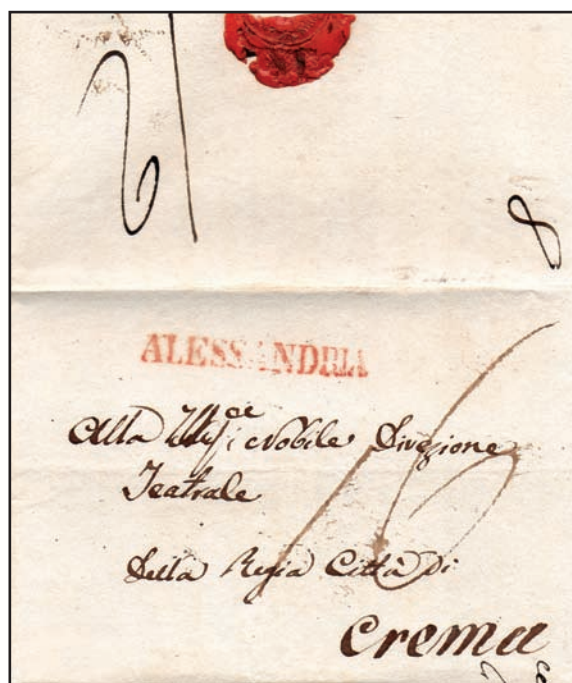 8
ALESSANDRIA
16
Alla Nobile Direzione
Teatrale
Della Regia Città Di
Crema